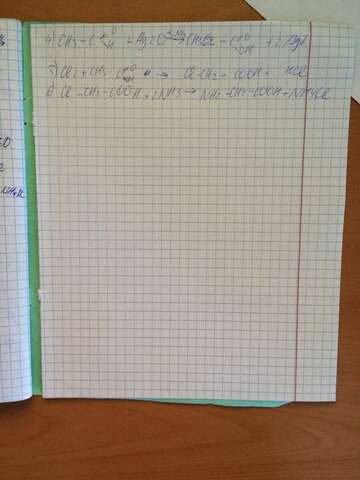 4) CH3 - C =O H + Ag2O → CH3 - C =O OH + 2Ag↓
5) Cl2 + CH3 - C =O OH → Cl-CH2 - COOH + HCl
6) Cl - CH2 - COOH + 2NH3 → NH2 - CH2 - COOH + NH4Cl
NH4Cl